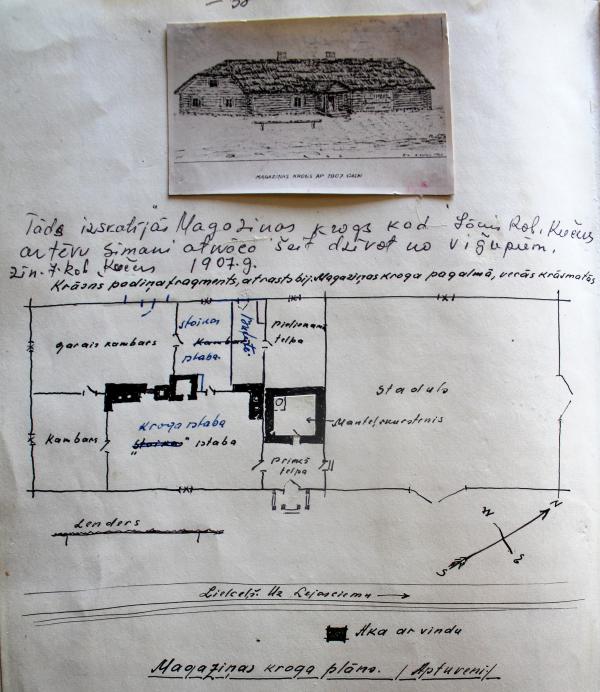 MAGAZINAS KROGS AP 1907. GADU
Tāds izskatījās Magazinas krogs kad Rob. Ķučus
ar tēvu Simani atnāca šeit dzīvot no Vigupiem.
zin. 7. Rob. Ķučus 1907.g.
Krāsns podiņa fragments, atrasts bij. Magazinas kroga pagalmā, vecās krāsmatās
garais kambars
stoikas
Kambars
istaba
Bufete
pieliekamā
telpa
Stadula
Kambars
Kroga istaba
"Stoikas" istaba
Manteļskurstenis
priekš
telpa
Lenders
N
S
Lielceļš. Uz Lejasciemu →
Aka ar vindu
Magazinas kroga plāns. /Aptuveni/